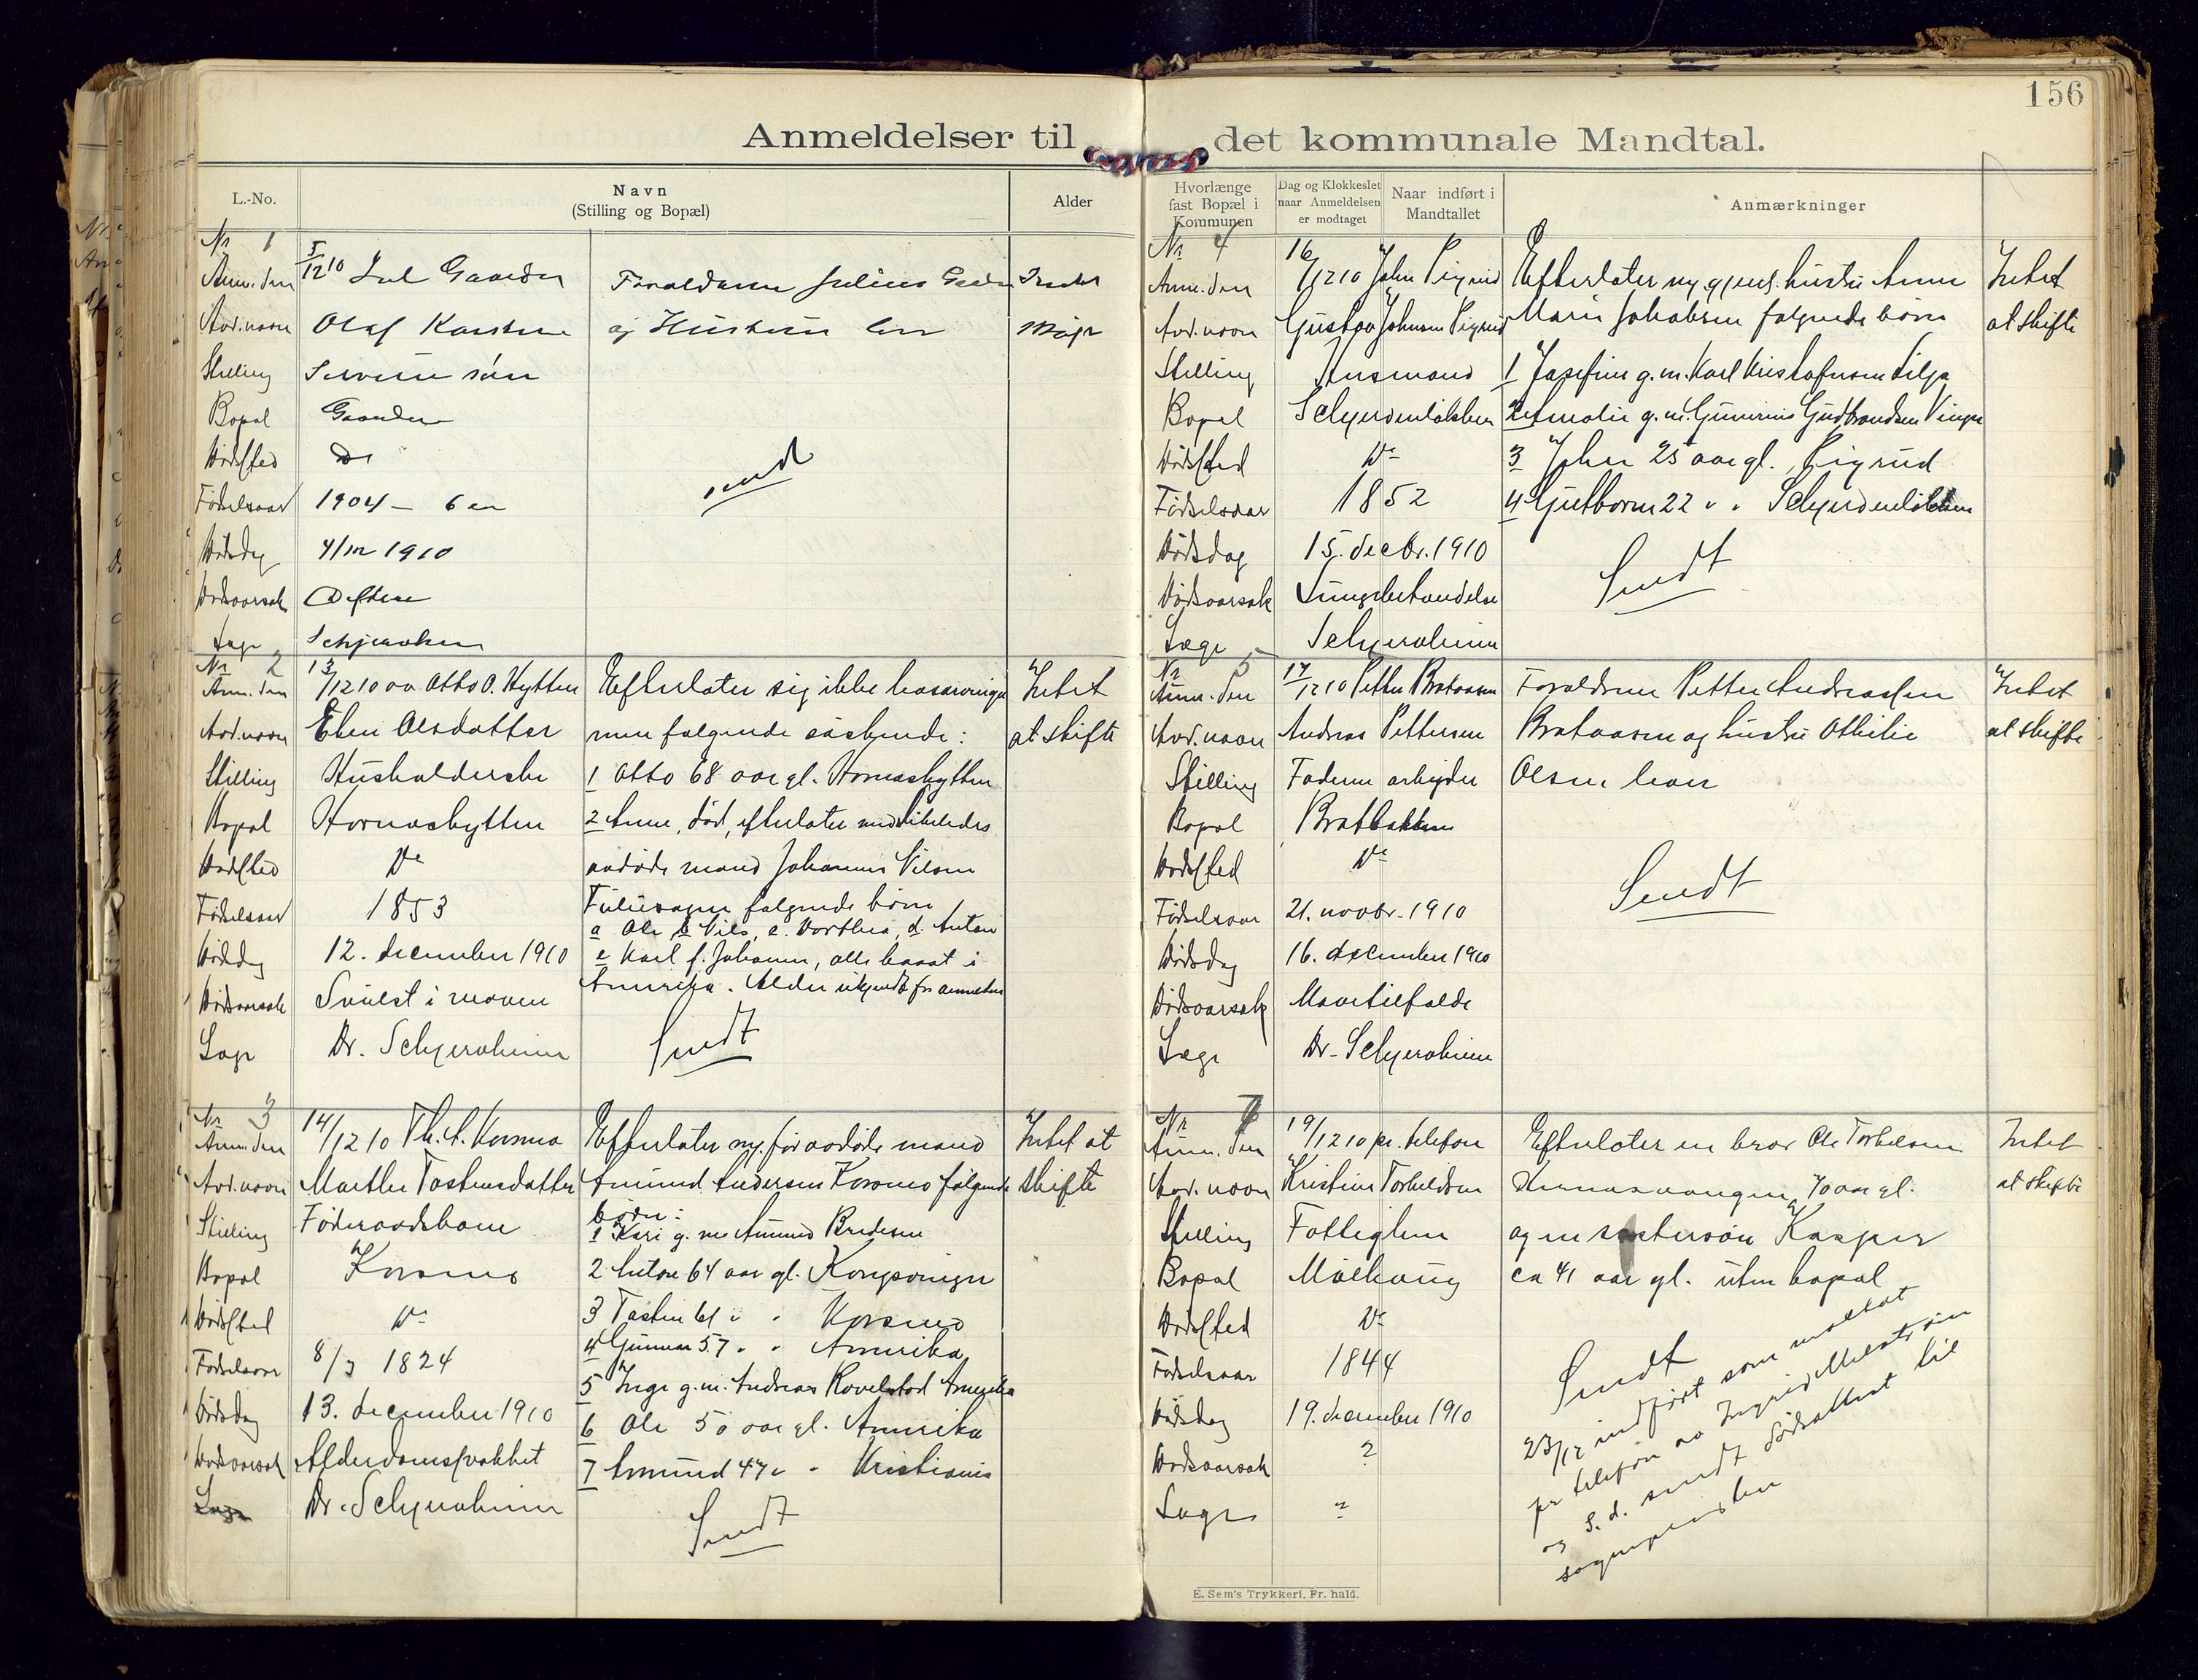 156
Anmeldelser til det kommunale Mandtal.
L.-No.
Navn
(Stilling og Bopæl)
Alder
Nr 1
Anm. den 5/12 10 Jul Gaarder
Avd. navn Olaf Karsten
Stilling søn
Bopæl Gaarder
Dødssted Do
Fødselsaar 1904 – 6 aar
Dødsdag 4/12 1910
Dødsaarsak
Læge
Forældrene Julius
og Hustru lever
sendt
Nr 2
Anm. den 13/12 10 av Otto O. Hytten
Avd. navn Eline Olsdatter
Stilling Husholderske
Bopæl Hornashytten
Dødssted Do
Fødselsaar 1853
Dødsdag 12. december 1910
Dødsaarsak Svulst i maven
Læge Dr. Schjeroheim
Efterlater sig ikke livsarvinger
men følgende søskende:
1 Otto 68 aar gl. Hornashytten
2 Anne, død, efterlater med likeledes
avdøde mand Johannes Nilsen
følgende børn
a Ole b Nils, c. Dorthea, d. Anton
e Karl f. Johanne, alle bosat i
Amerika. Alder ukjendt for anmelder
Sendt
Intet
at skifte
Nr 3
Anm. den 14/12 10 Th. A. Korsmo
Avd. navn Marthe Tostensdatter
Stilling Føderaadskone
Bopæl Korsmo
Dødssted Do
Fødselsaar 8/3 1824
Dødsdag 13. december 1910
Dødsaarsak Alderdomssvakhet
Læge Dr. Schjeroheim
Efterlater m. før avdøde mand
Amund Andersen Korsmo følgende
børn:
1 Kari g. m. Amund Bredesen
2 Anton 64 aar gl. Kongsvinger
3 Tosten 61 " " Korsmo
4 Gunnar 57 " " Amerika
5 Inge g. m. Andreas Rovelstad Amerika
6 Ole 50 aar gl. Amerika
7 Amund 47 " " Kristiania
Sendt
Intet at
skifte
Hvorlænge
fast Bopæl i
Kommunen
Dag og Klokkeslet
naar Anmeldelsen
er modtaget
Naar indført i
Mandtallet
Anmærkninger
Nr 4
Anm. den 16/12 10 John Pigrud
Avd. navn Gustav Johnsen Pigrud
Stilling Husmand
Bopæl Schjerdenløkken
Dødssted Do
Fødselsaar 1852
Dødsdag 15. decbr. 1910
Dødsaarsak Lungebetændelse
Læge Schjeroheim
Efterlater m. gjenl. hustru Anne
Marie Jakobsen følgende børn
1 Josefine g. m. Karl Kristofersen Lilja
2 Amalie g. m. Gunerius Gudbrandsen Vinger
3 John 25 aar gl. Pigrud
4 Gutborm 22 " " Schjerdenløkken
Sendt
Intet
at skifte
Nr 5
Anm. den 17/12 10 Petter Brataasen
Avd. navn Andreas Pettersen
Stilling Faderen arbeider
Bopæl Bratbakken
Dødssted Do
Fødselsaar 21. novbr. 1910
Dødsdag 16. december 1910
Dødsaarsak Mavetilfælde
Læge Dr. Schjeroheim
Forældrene Petter Andreassen
Brataasen og hustru Othilie
Olsen lever
Sendt
Intet
at skifte
Nr 7
Anm. den 19/12 10 pr. telefon
Avd. navn Kristian Torkeldsen
Stilling Fattiglem
Bopæl Møkhaug
Dødssted Do
Fødselsaar 1844
Dødsdag 19. december 1910
Dødsaarsak ?
Læge ?
Efterlater en bror Ole Torkelsen
70 aar gl.
og en søstersøn Kasper
ca 41 aar gl. uten bopæl
Sendt
23/12 indført som mottat
pr telefon av
og s. d. sendt dødsattest til
sognepresten
Intet
at skifte
E. Sem's Trykkeri, Fr.hald.